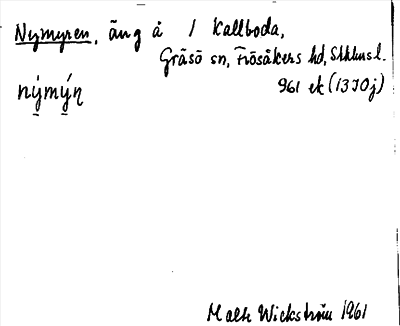 Nymyren, äng å 1 Kallboda,
Gräsö sn, Frösåkers hd, Sthlms l.
961 ek (13J0j)
nýmýn
Malte Wickström 1961